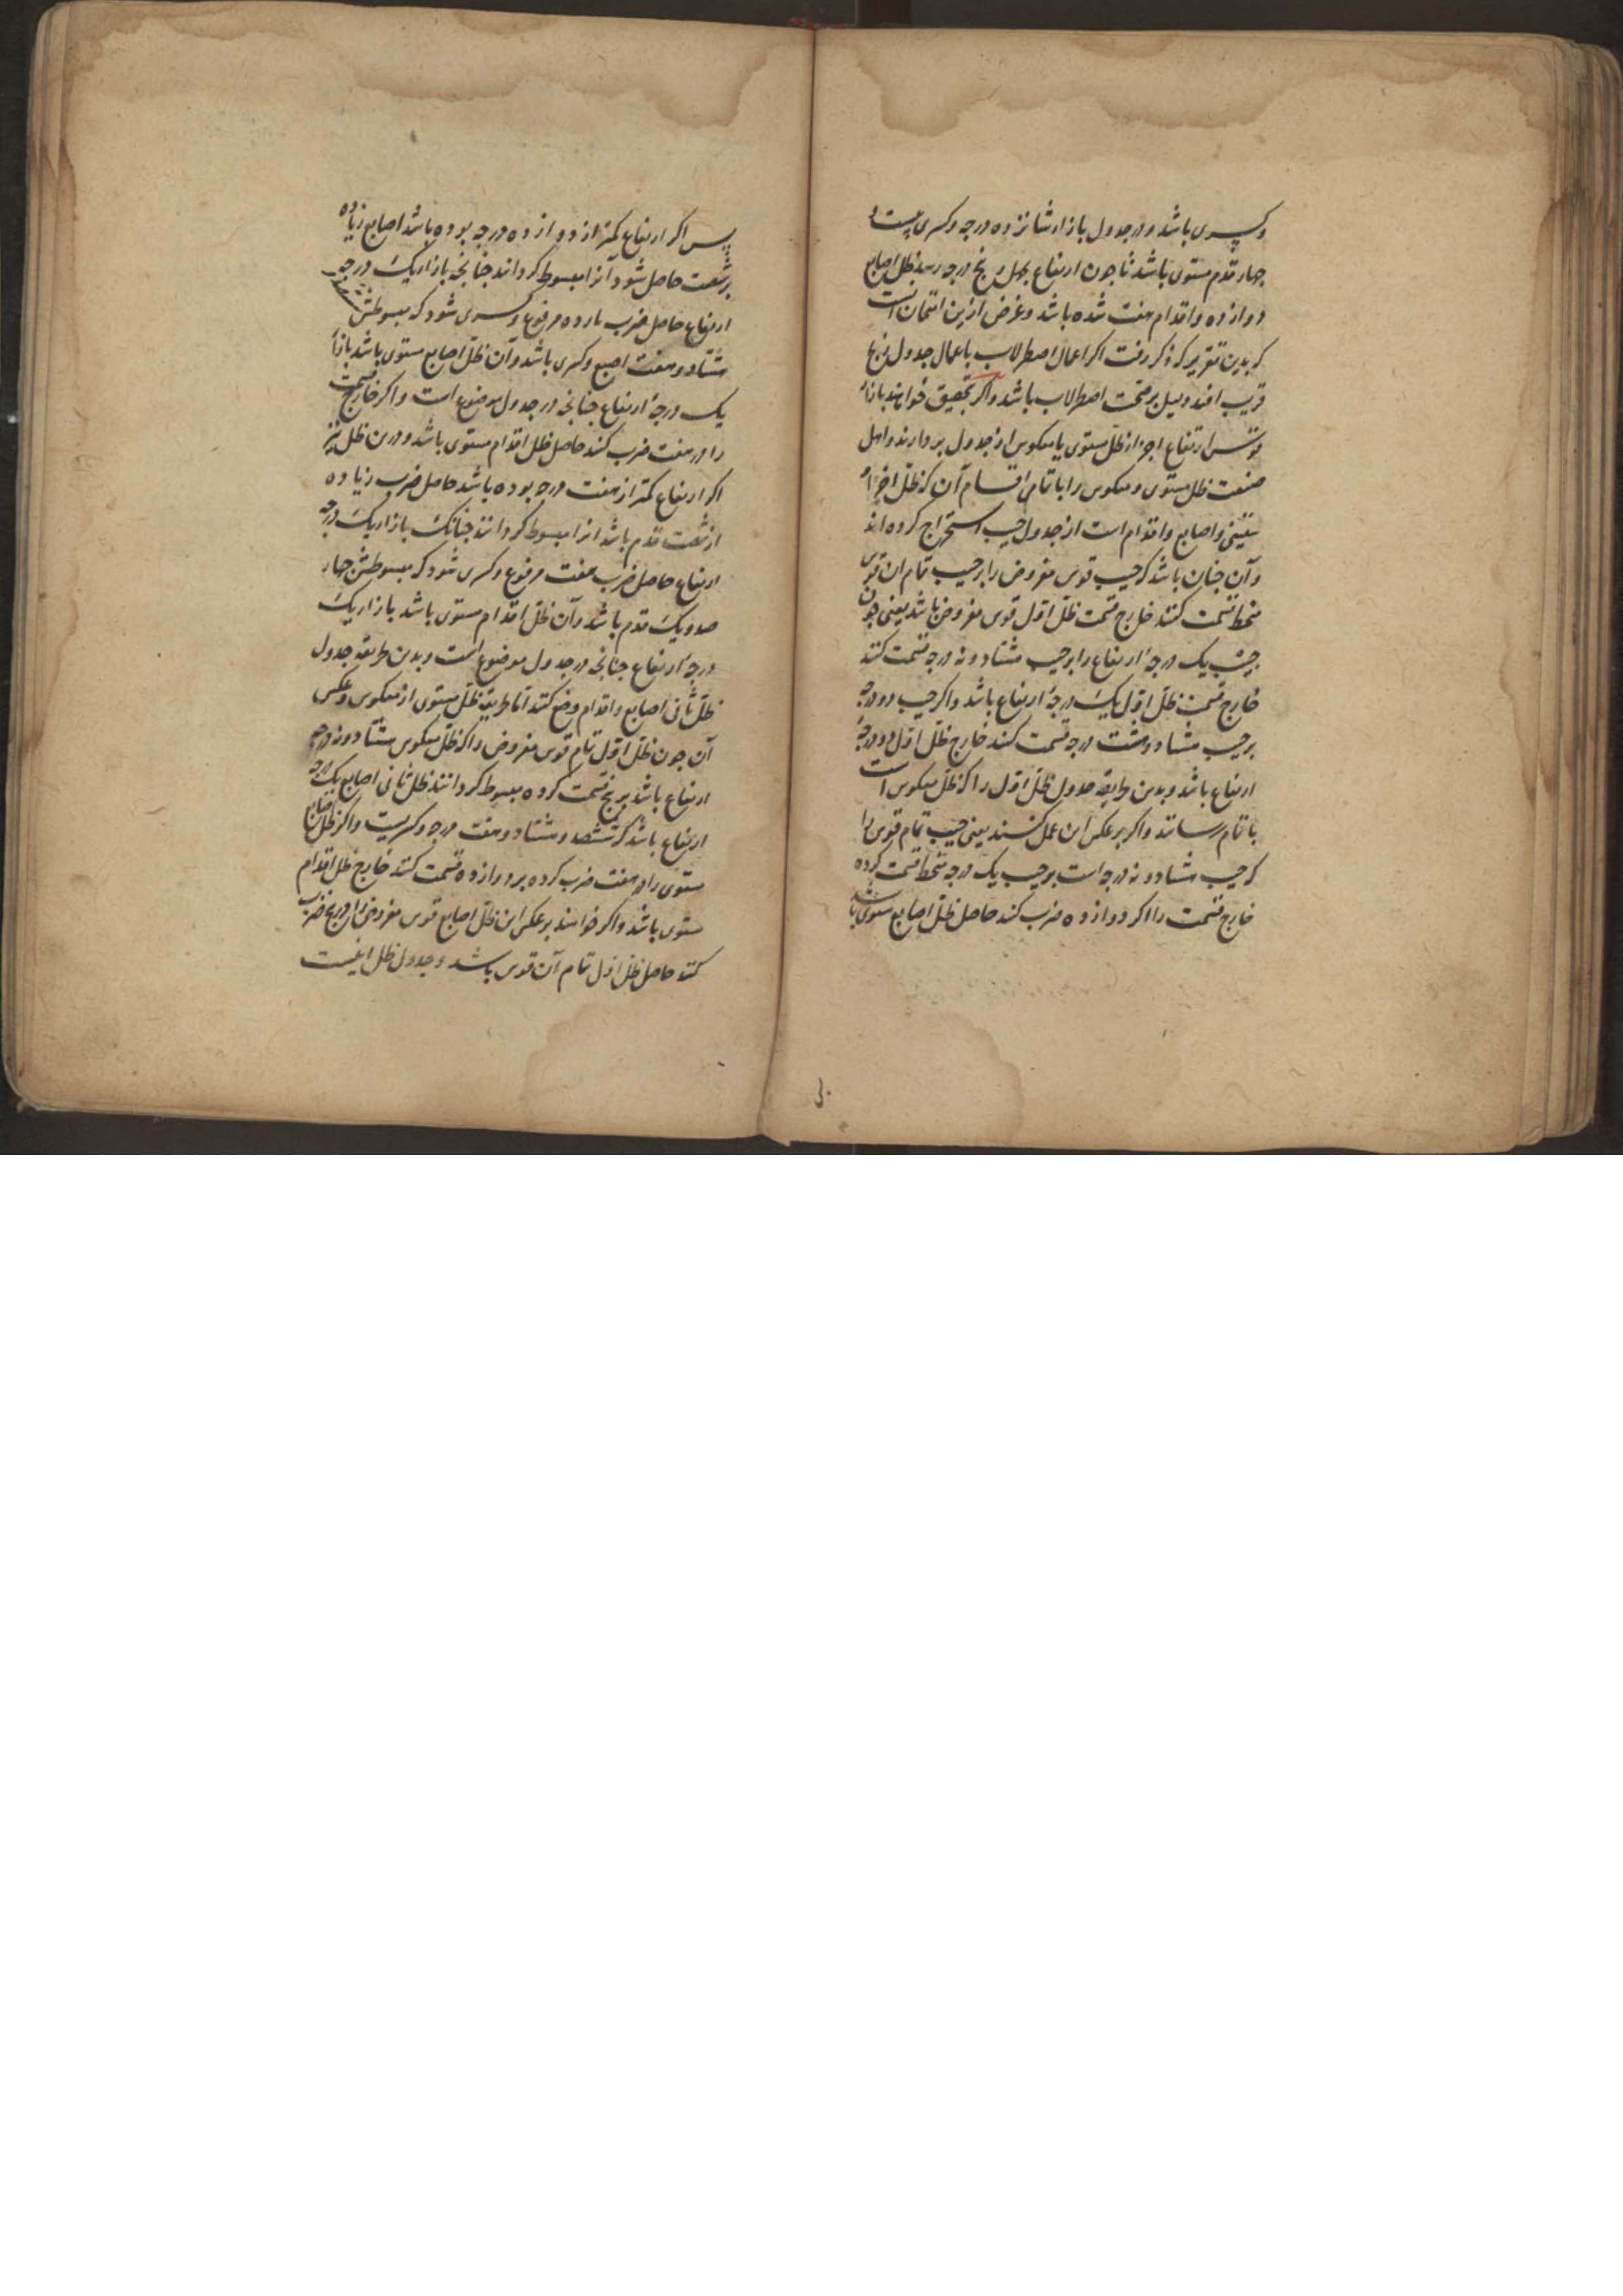 و کسری باشد و در جدول بازاء شانزده درجه و کسری بیست و
چهار قدم مستوی باشد تا چون ارتفاع بچهل و پنج درجه رسد ظل اصابع
دوازده و اقدام هفت شده باشد و غرض ازین امتحان است
که بدین تقریر که ذکر رفت اکر اعمال اصطرلاب باعمال جدول زیج
قریب افتد دلیل بر صحت اصطرلاب باشد و اکر تحقیق خواهند بازاء
قوس ارتفاع اجزاء ظل مستوی یا معکوس از جدول بردارند و اهل
صنعت ظل مستوی و معکوس را با تمامی اقسام آن که ظل اجزاء
ستینی و اصابع و اقدام است از جدول جیب استخراج کرده اند
و آن چنان باشد که جیب قوس مفروض را بر جیب تمام ان قوس
منحط قسمت کنند خارج قسمت ظل اول قوس مفروض باشد یعنی چون
جیب یک درجهٔ ارتفاع را بر جیب هشتاد و نه درجه قسمت کنند
خارج قسمت ظل اول یک درجهٔ ارتفاع باشد و اکر جیب دو درجه
بر جیب هشتاد و هشت درجه قسمت کنند خارج ظل اول دو درجهٔ
ارتفاع باشد و بدین طریقه جدول ظل اول را که ظل معکوس است
باتمام رسانند و اکر بر عکس این عمل کنند یعنی جیب تمام قوس را
که جیب هشتاد و نه درجه است بر جیب یک درجه منحط قسمت کرده
خارج قسمت را اکر در دوازده ضرب کنند حاصل ظل اصابع مستوی باشد
پس اکر ارتفاع کمتر از دوازده درجه بوده باشد اصابع زیاده
بر شصت حاصل شود آنرا مبسوط کردانند چنانچه بازاء یک درجه
ارتفاع حاصل ضرب یازده مرفوع و کسری شود که مبسوطش ششصد
هشتاد و هفت اصبع و کسری باشد و آن ظل اصابع مستوی باشد بازاء
یک درجهٔ ارتفاع چنانچه در جدول موضوع است و اکر خارج قسمت
را در هفت ضرب کنند حاصل ظل اقدام مستوی باشد و درین ظل نیز
اکر ارتفاع کمتر از هفت درجه بوده باشد حاصل ضرب زیاده
از شصت قدم باشد انرا مبسوط کردانند چنانک بازاء یک درجه
ارتفاع حاصل ضرب هفت مرفوع و کسری شود که مبسوطش چهار
صد و یک قدم باشد و آن ظل اقدام مستوی باشد بازاء یک
درجهٔ ارتفاع چنانچه در جدول موضوع است و بدین طریقه جدول
ظل ثانی اصابع و اقدام وضع کنند اما طریقهٔ ظل مستوی از معکوس و عکس
آن چون ظل اول تمام قوس مفروض را که ظل معکوس هشتاد و نه درجه
ارتفاع باشد بر پنج قسمت کرده مبسوط کردانند ظل ثانی اصابع یک درجه
ارتفاع باشد که ششصد و هشتاد و هفت درجه و کسریست و اکر ظل اصابع
مستوی را در هفت ضرب کرده بر دوازده قسمت کنند خارج ظل اقدام
مستوی باشد و اکر خواهند بر عکس این ظل اصابع قوس مفروض را در پنج ضرب
کنند حاصل ظل اول تمام آن قوس باشد و جدول ظل اینست